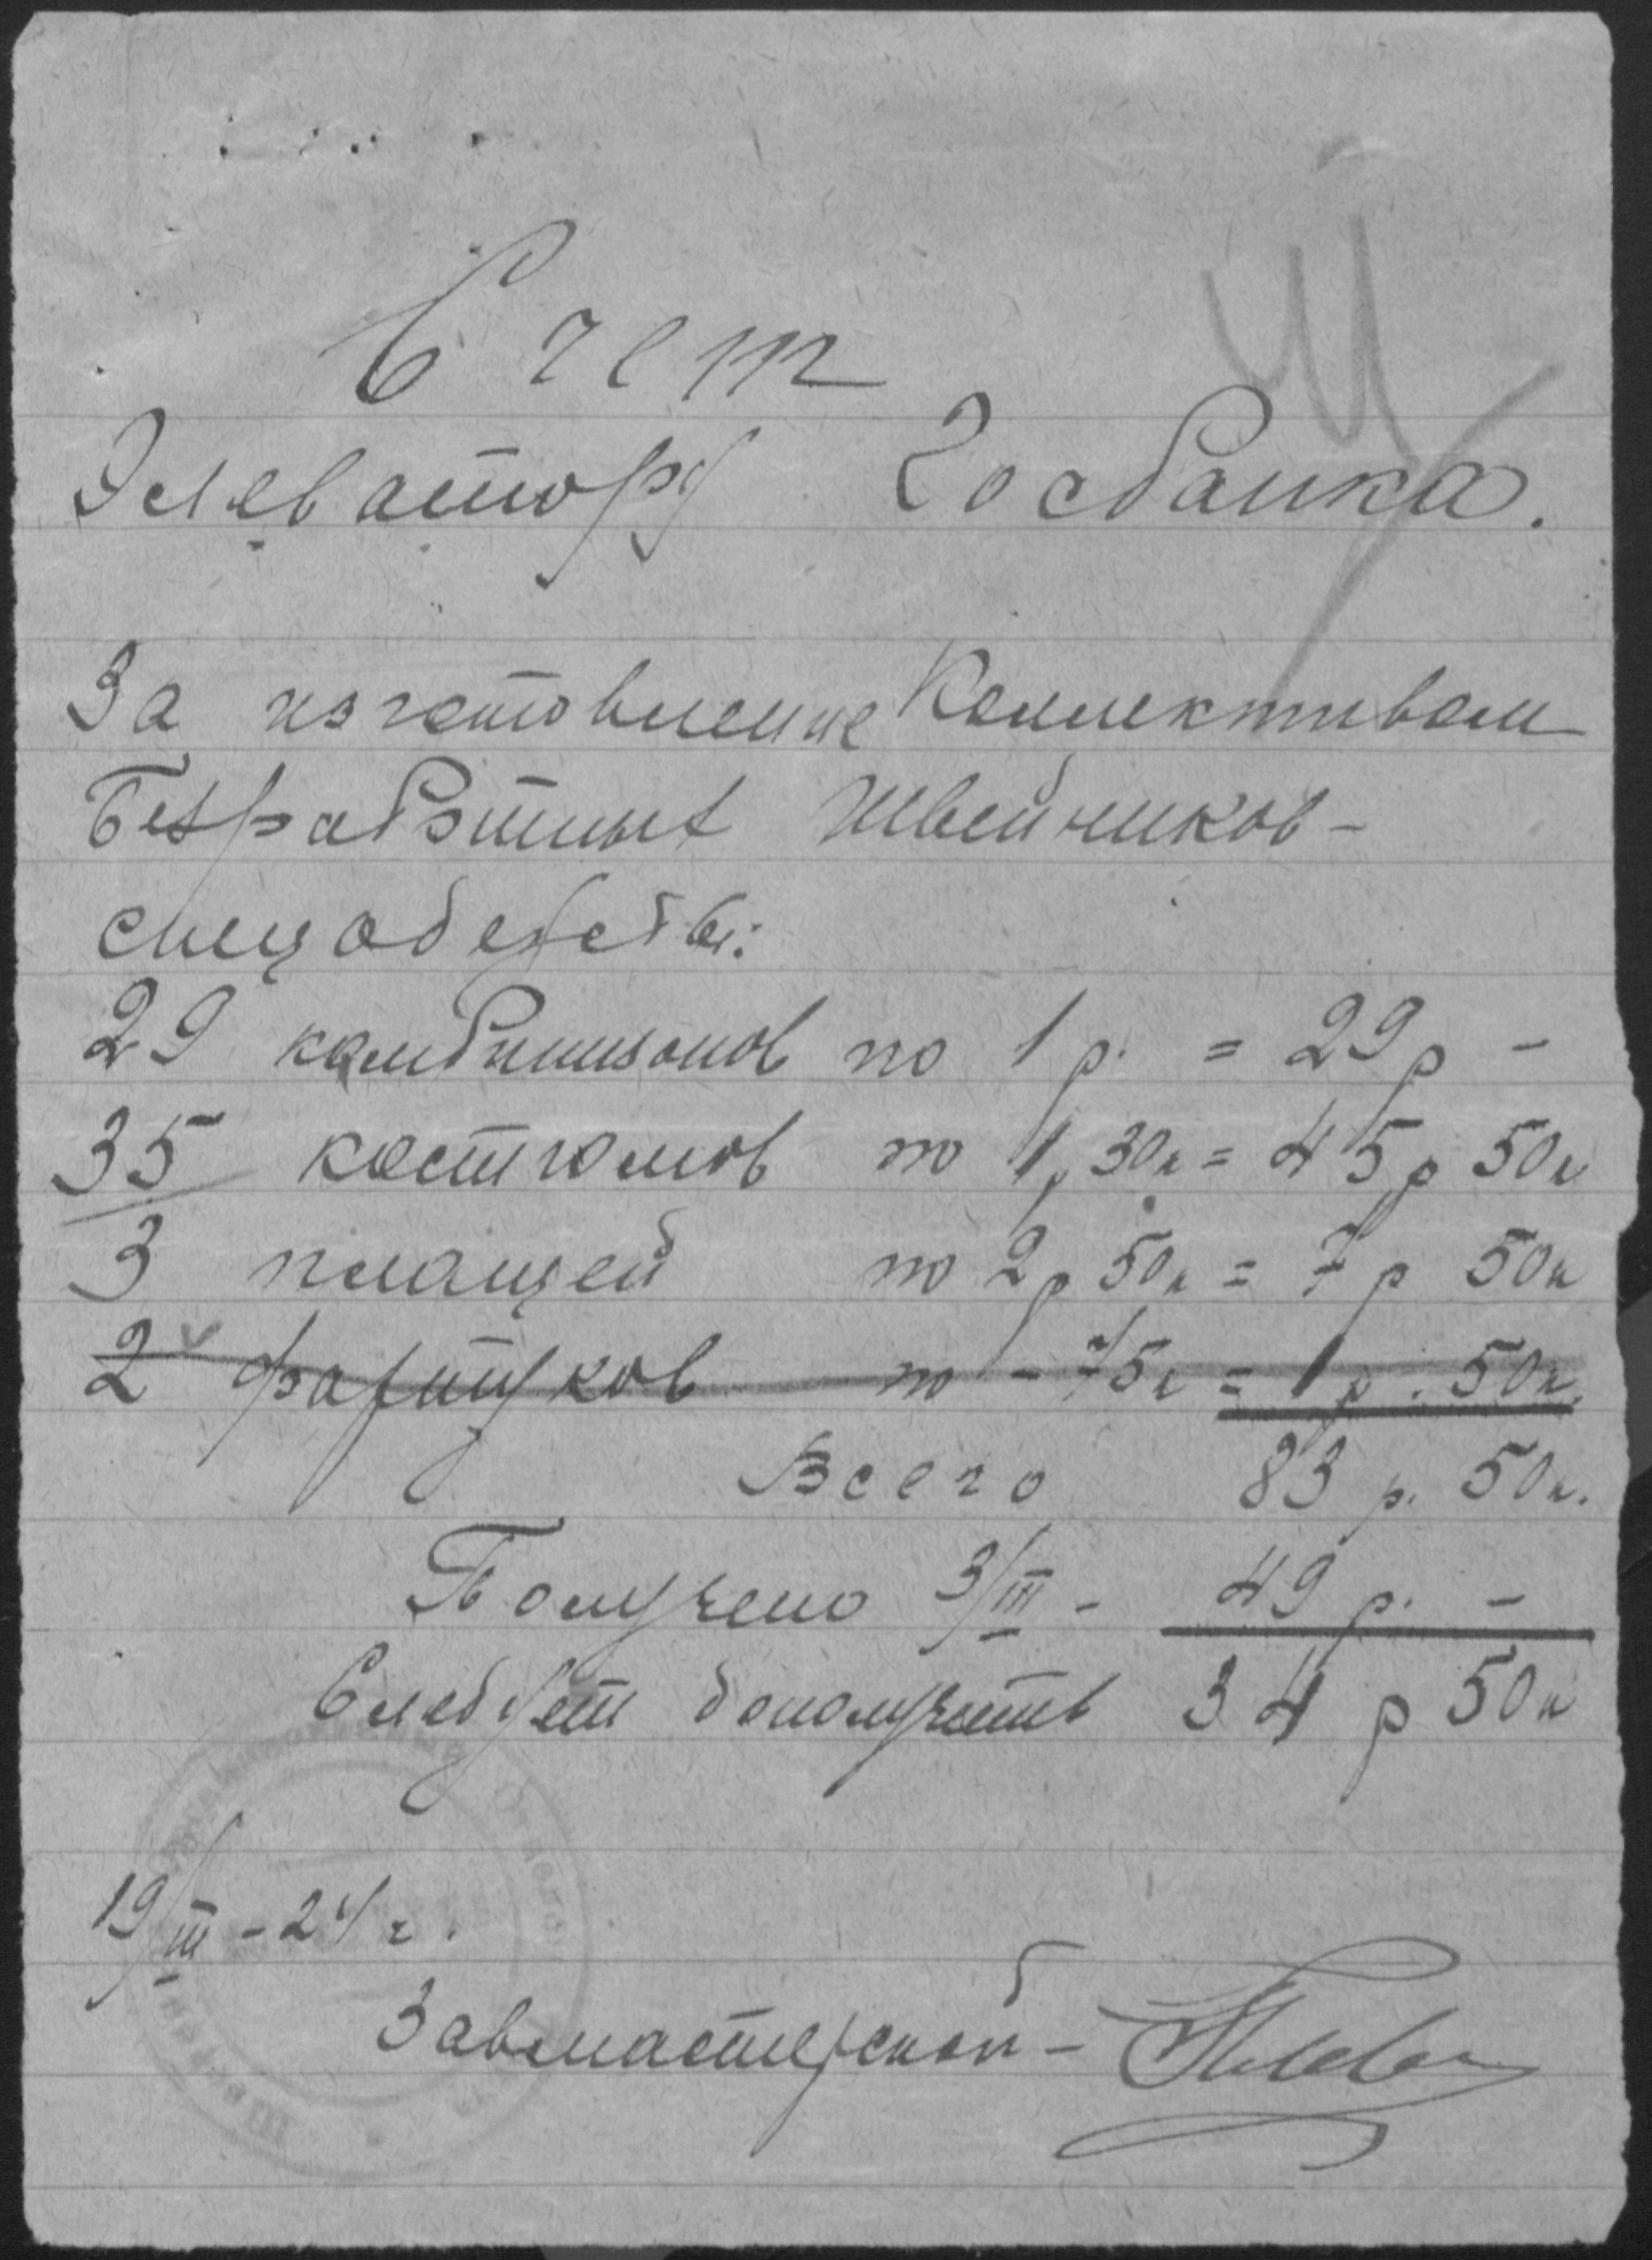 Счет
Элеватору Госбанка.
За изготовление Коллективом
Безработных Швейников -
спецодежды:
29 комбинизонов по 1 р. = 29 р -
35 костюмов по 1 р 30к = 45 р 50к
3 плащей по 2 р 50к = 7 р 50к
2 фартуков по - 75к = 1 р. 50к.
Всего 83 р. 50к.
Получено 3/III - 49 р. -
Следует дополучить 34 р 50к
19/III - 24 г.
Завмастерской -